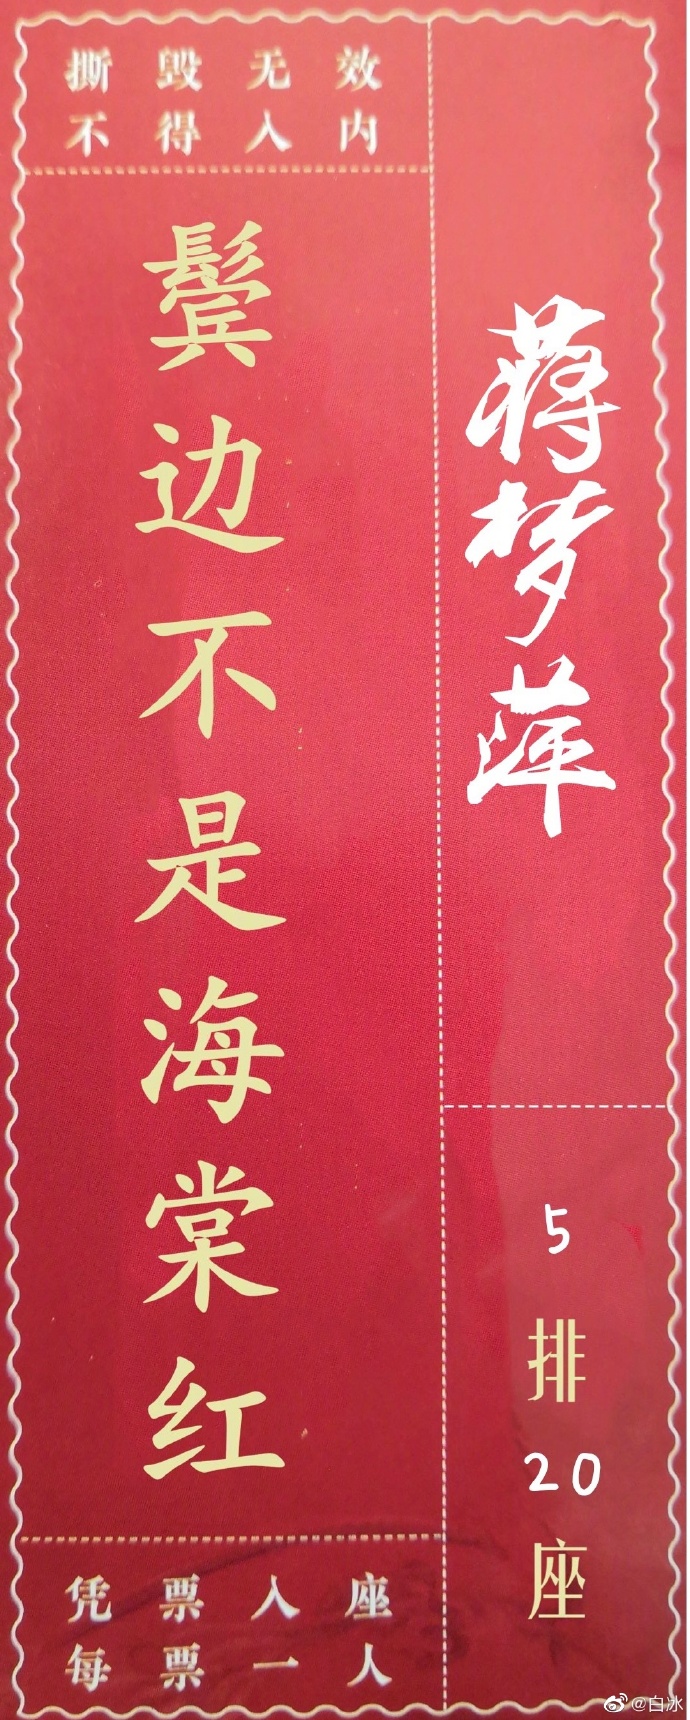 撕毁无效
不得入内
鬓边不是海棠红
凭票入座
每票一人
蒋梦萍
5
排
20
座
@白冰